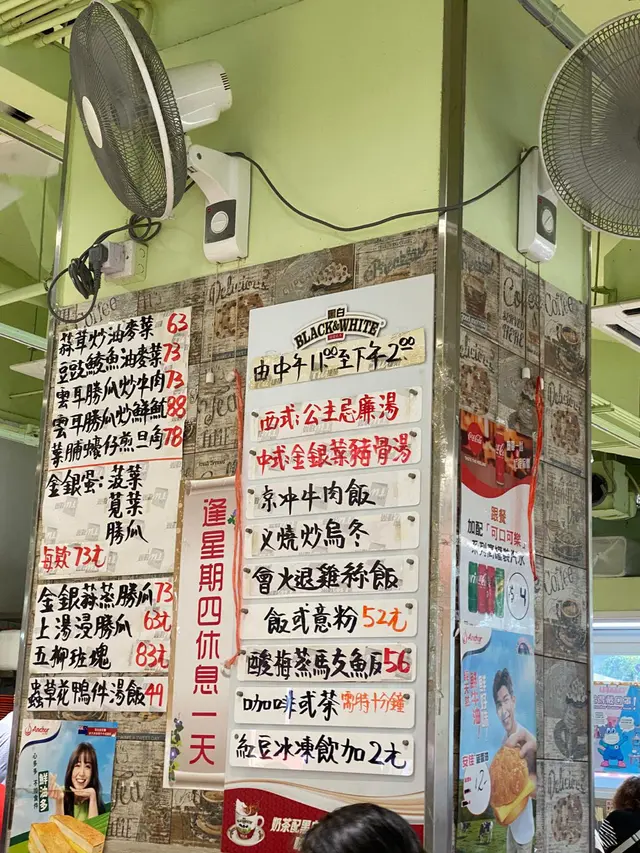 蒜茸炒油麥菜 63
豆豉鯪魚油麥菜 73
雲耳勝瓜炒牛肉 73
雲耳勝瓜炒鮮魷 88
菜脯蠔仔煎旦角 78
金銀蛋：菠菜
莧菜
勝瓜
每款73元
金銀蒜蒸勝瓜 73
上湯浸勝瓜 63元
五柳班塊 83元
蟲草花鴨件湯飯 49
逢星期四休息一天
黑白
BLACK&WHITE
由中午11:00至下午2:00
西式:公主忌廉湯
中式:金銀菜豬骨湯
京沖牛肉飯
叉燒炒烏冬
會火退雞絲飯
飯或意粉 52元
酸梅蒸馬友魚飯 56
咖啡或茶 需時十分鐘
紅豆冰凍飲加2元
Anchor
鮮油多
奶茶配黑
Delicious
Coffee
Coca-Cola
跟餐
加配「可口可樂」
$4
Anchor
安佳